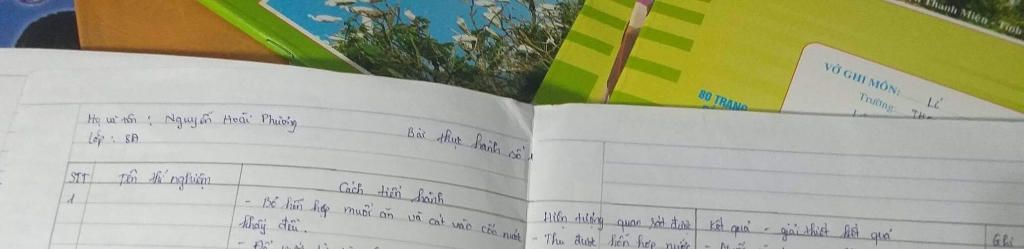 Thanh Miện - Tỉnh
VỞ GHI MÔN: Lí
Trường:
80 TRANG
Họ và tên : Nguyễn Hoài Phương
Lớp : 8A
Bài thực hành số
STT
Tên thí nghiệm
Cách tiến hành
Hiện tượng quan sát được
Kết quả - giải thích kết quả
Ghi
1
- Bỏ hỗn hợp muối ăn và cát vào cốc nước
khuấy đều.
- Thu được hỗn hợp nước